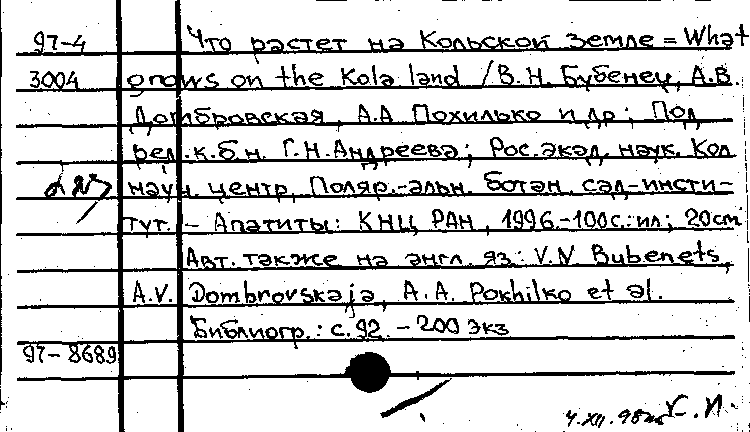 97-4 Что растет на Кольской земле = What
3004 grows on the Kola land / В.Н. Бубенец, А.В.
Домбровская, А.А. Похилько и др; Под
ред. к.б.н. Г.Н. Андреева; Рос. акад. наук. Кол
науч. центр, Поляр.-альп. ботан. сад-инсти-
тут. - Апатиты: КНЦ РАН, 1996. - 100с.: ил; 20см
Авт. также на англ. яз: V.N Bubenets,
A.V. Dombrovskaja, A.A. Pokhilko et al.
Библиогр.: с. 92. - 200 экз
97-8689
4.XII.98